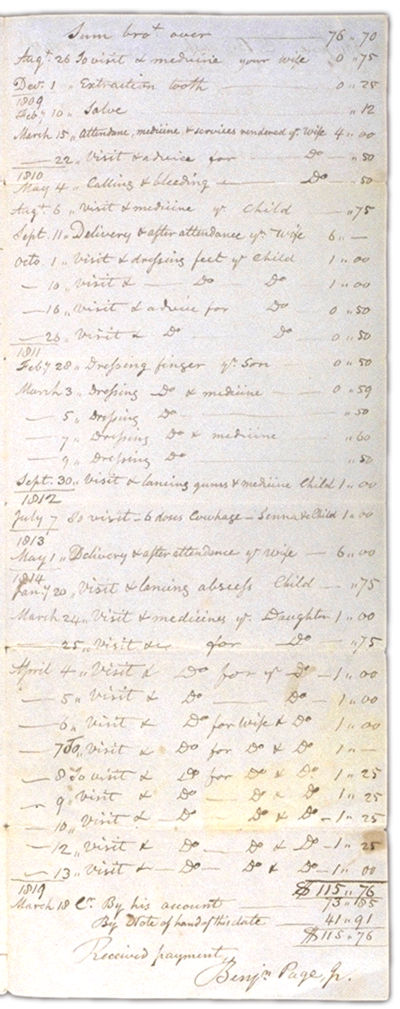 Sum brot over — 76 „ 70
Augt. 26 To visit & medicine your wife 0 „ 75
Decr. 1 „ Extraction tooth — 0 „ 25
1809
Feby 10 „ Salve — „ 12
March 15 „ Attendane, medicine, & services rendered yr. Wife 4 „ 00
— 22 „ Visit & advice for — Do — „ 50
1810
May 4 „ Calling & bleeding — Do „ 50
Augt. 6 „ visit & medicine yr Child — „ 75
Sept. 11 „ Delivery & after attendance yr Wife 6 „ —
Octo. 1 „ Visit & dressing feet yr Child 1 „ 00
— 10 „ visit & — Do — Do 1 „ 00
— 16 „ visit & advice for Do — 0 „ 50
— 26 „ Visit & Do — Do — 0 „ 50
1811
Feby 28 „ Dressing finger yr. Son — 0 „ 50
March 3 „ Dressing Do & medicine — 0 „ 59
— 5 „ Dressing Do — „ 50
— 7 „ Dressing Do & medicine „ 60
— 9 „ Dressing Do — „ 50
Sept. 30 „ Visit & lancing gums & medicine Child 1 „ 00
1812
July 7 To visit – 6 doses Cowhage – Senna & Child 1 „ 00
1813
May 1 „ Delivery & after attendance yr Wife — 6 „ 00
1814
Jany 20 „ Visit & lancing abscess Child — „ 75
March 24 „ Visit & medicines yr Daughter 1 „ 00
— 25 „ Visit &c for Do — „ 75
April 4 „ Visit & Do for yr Do — 1 „ 00
— 5 „ Visit & Do — Do — 1 „ 00
— 6 „ Visit & Do for Wife & Do 1 „ 00
— 7 To „ visit & Do for Do & Do 1 „ —
— 8 To visit & Do for Do & Do 1 „ 25
— 9 „ Visit & Do — Do & Do 1 „ 25
— 10 „ Visit & Do — Do & Do – 1 „ 25
— 12 „ Visit & Do — Do & Do – 1 „ 25
— 13 „ Visit & — Do — Do & Do — 1 „ 00
$ 115 „ 76
1819
March 18 Cr. By his account — 73 „ 85
By Note of hand of this date — 41 „ 91
$ 115 „ 76
Received payment,
Benjn. Page, Jr.